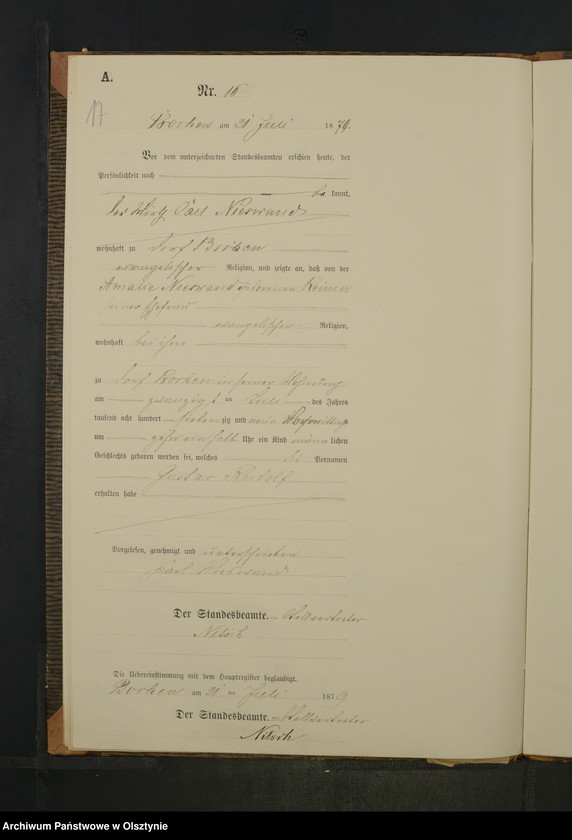 A.
Nr. 16
17
Borken am 21 Juli 1879.
Vor dem unterzeichneten Standesbeamten erschien heute, der
Persönlichkeit nach
be kannt,
der Wirth Carl Nieswand
wohnhaft zu Dorf Borken
evangelischer Religion, und zeigte an, daß von der
Amalie Nieswand geborenen
seiner Ehefrau
evangelischer Religion,
wohnhaft bei ihm
zu Dorf Borken in seiner Wohnung
am zwanzigsten Juli des Jahres
tausend acht hundert siebenzig und neun Nachmittags
um Uhr ein Kind männ lichen
Geschlechts geboren worden sei, welches die Vornamen
Gustav Rudolf
erhalten habe
Vorgelesen, genehmigt und unterschrieben
Carl Nieswand
Der Standesbeamte. Stellvertreter
Nitsch
Die Uebereinstimmung mit dem Hauptregister beglaubigt.
Borken am 21 ten Juli 1879
Der Standesbeamte. Stellvertreter
Nitsch
Archiwum Państwowe w Olsztynie